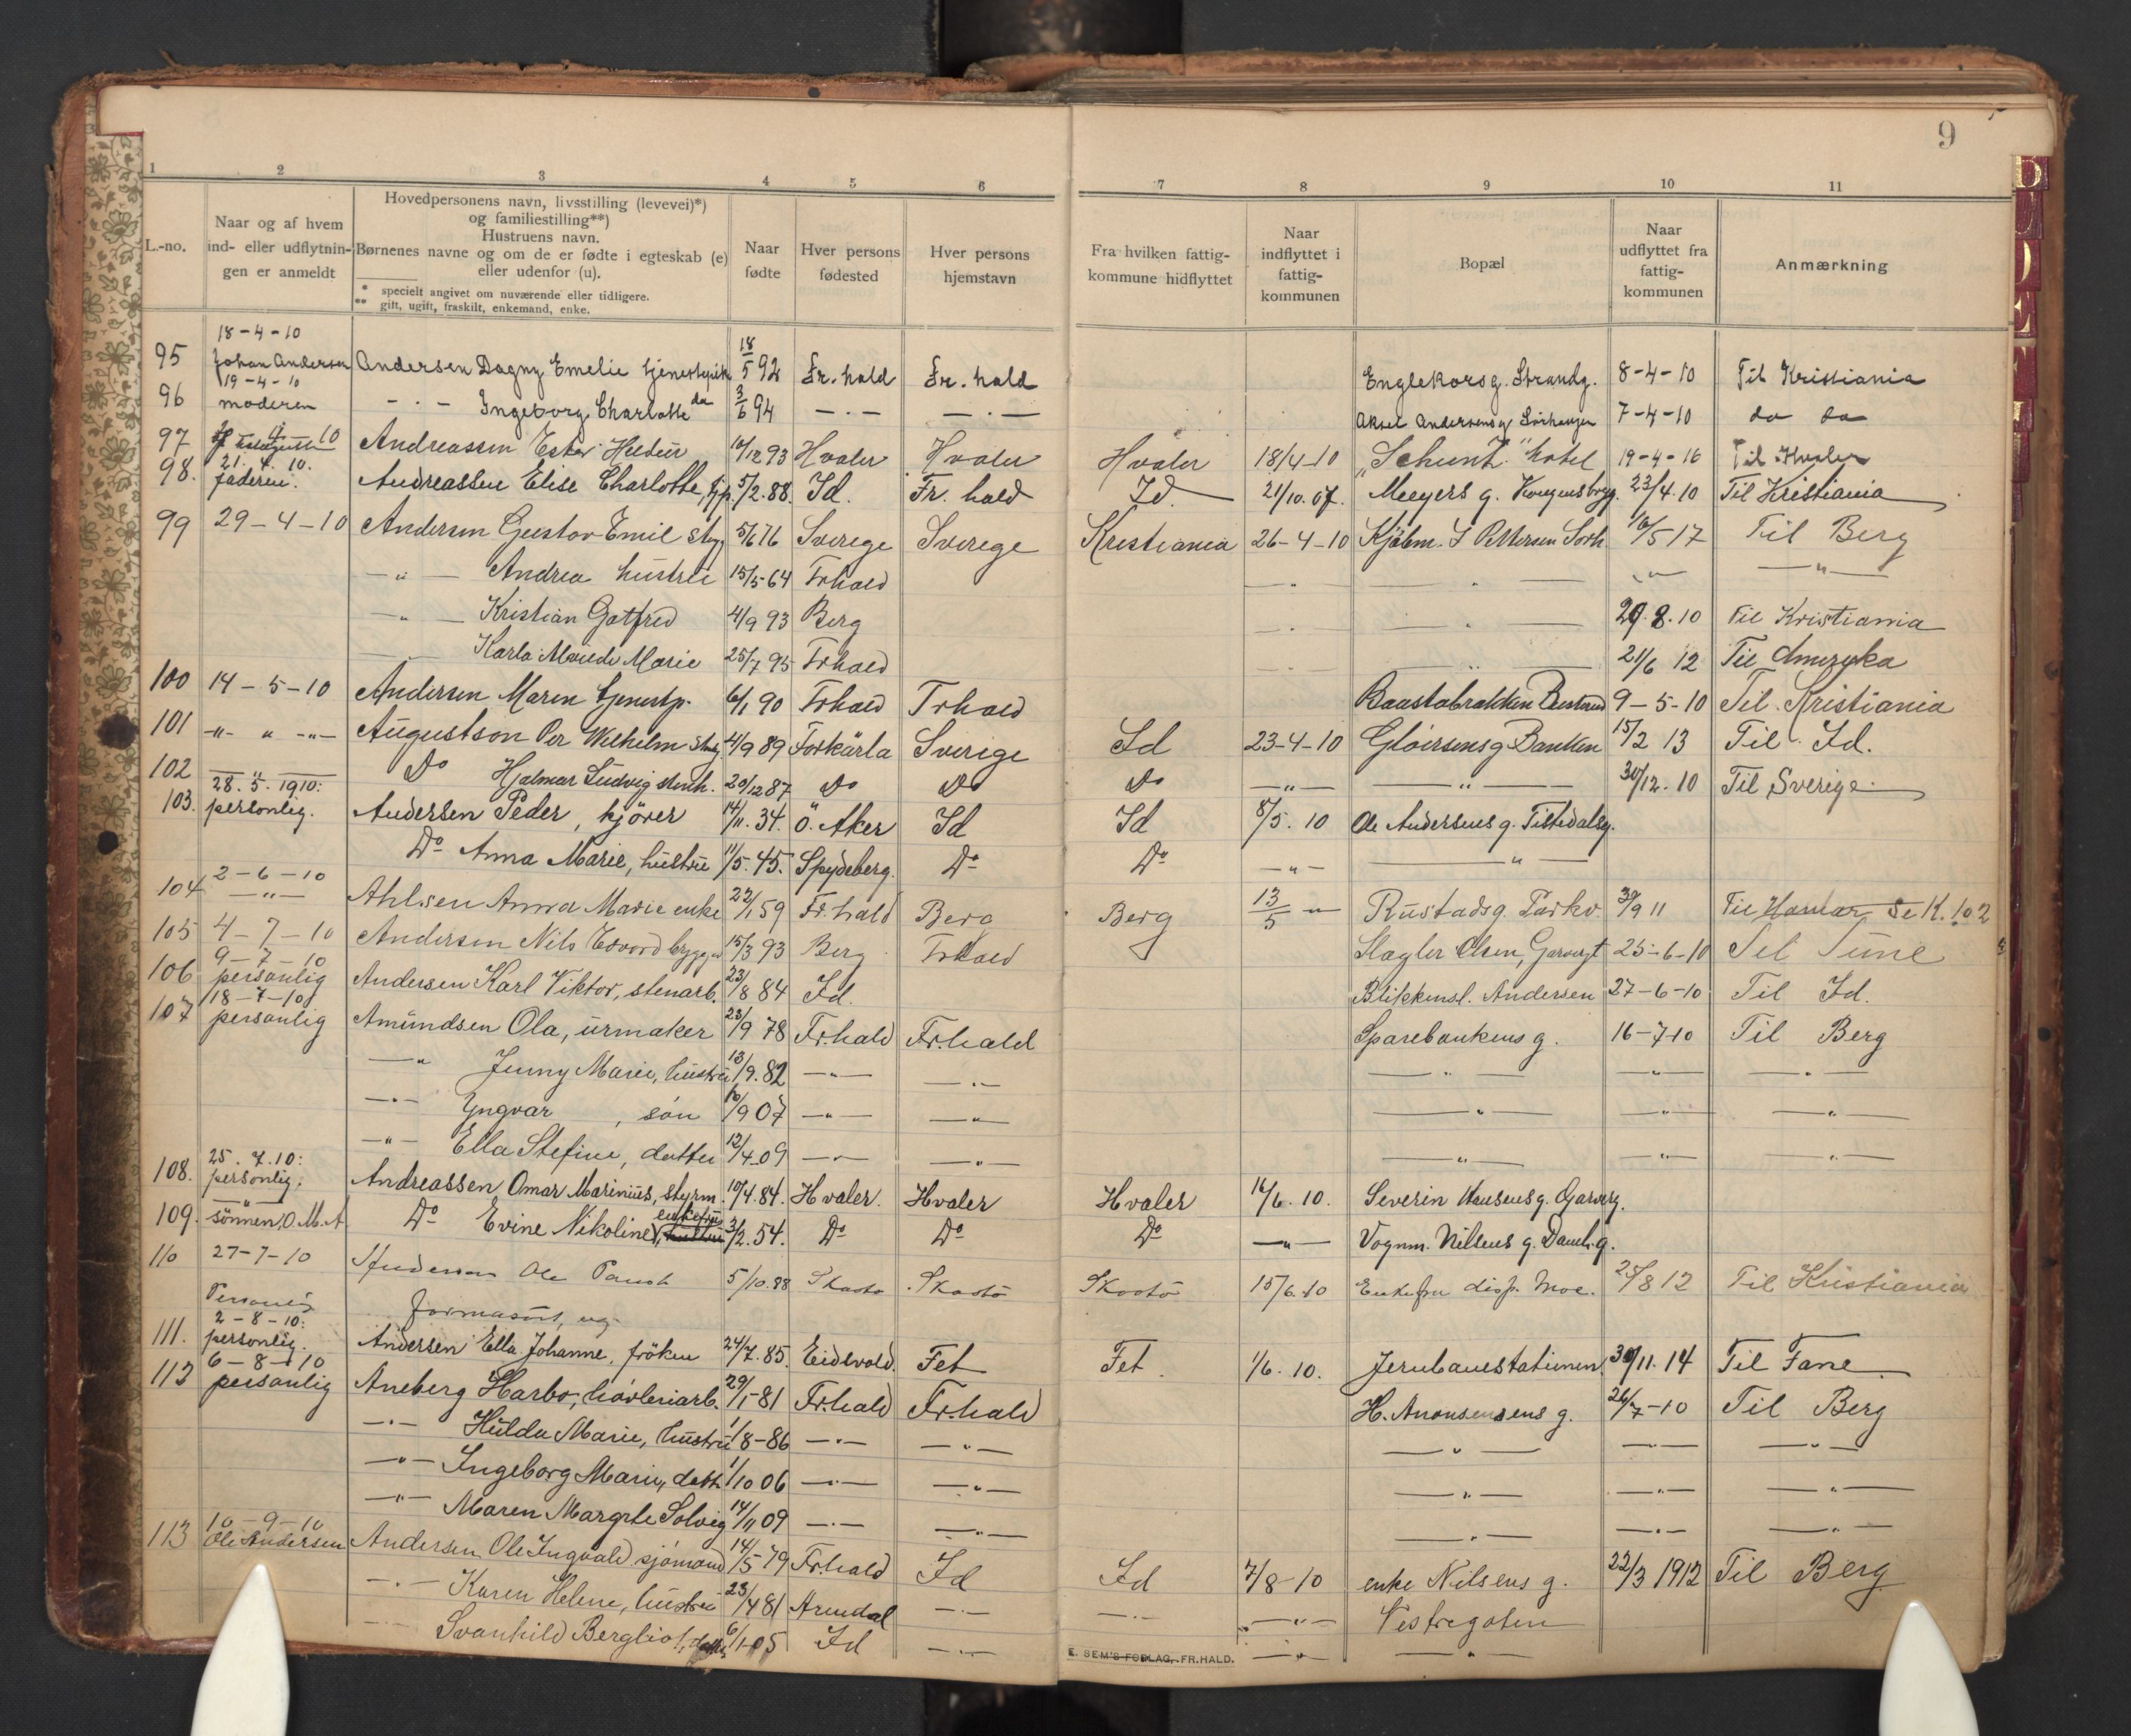 9
1 2 3 4 5 6 7 8 9 10 11
L.-no.
Naar og af hvem
ind- eller udflytnin-
gen er anmeldt
Hovedpersonens navn, livsstilling (levevei)*)
og familiestilling**)
Hustruens navn.
Børnenes navne og om de er fødte i egteskab (e)
eller udenfor (u).
* specielt angivet om nuværende eller tidligere.
** gift, ugift, fraskilt, enkemand, enke.
Naar
fødte
Hver persons
fødested
Hver persons
hjemstavn
Fra hvilken fattig-
kommune hidflyttet
Naar
indflyttet i
fattig-
kommunen
Bopæl
Naar
udflyttet fra
fattig-
kommunen
Anmærkning
18-4-10
95 Johan Andersen Andersen Dagny Emelie 18/5 92 Fr.hald Fr.hald Englekorsg. Strandg. 8-4-10 Til Kristiania
19-4-10
96 moderen -"- Ingeborg Charlotte do 3/6 94 -"- -"- Aksel Andersens g. 7-4-10 do do
97 10 Andreassen Ester 10/12 93 Hvaler Hvaler Hvaler 18/4-10 "Schunt." hotel 19-4-16 Til Hvaler
21. 4. 10.
98. faderen. Andreassen Elise Charlotte, tjp. 5/2. 88. Id. Fr. hald Id 21/10. 07. Meeyers g. Kongensbryg. 23/4. 10 Til Kristiania
99 29-4-10 Andersen Gustav Emil 5/6 76 Sverige Sverige Kristiania 26-4-10 10/5 17 Til Berg
-"- Andrea hustru 15/5-64 Frhald -"- -"- -"- -"-
-"- Kristian Gotfred 4/9 93 Berg -"- -"- 29. 8. 10 Til Kristiania
-"- Karla Marie 25/7 95 Frhald -"- -"- 21/6 12 Til Amerika
100 14-5-10 Andersen Maren tjenestp. 6/1 90 Frhald Frhald 9-5-10 Til Kristiania
101 -"- " -"- Augustson Per Wilhelm 4/9 89 Torkärla Sverige Id 23-4-10 Banken 15/2 13 Til Id.
102 -"- Do Hjalmar Ludvig 20/12 87 Do Do Do -"- -"- 30/12. 10 Til Sverige
28. 5. 1910:
103. personlig. Andersen Peder, kjører 14/11. 34. Ö. Aker Id Id 8/5. 10 Ole Andersens g. Tistedalsg.
Do Anna Marie, hustru 11/5. 45. Spydeberg. Do Do -"- -"-
2-6-10
104 -"- Ahlsen Anna Marie enke 22/1 59 Fr.hald Berg Berg 13/5 -"- Rustadsg. Parkv. 30/9 11 Til Hamar Se K. 102
105 4-7-10 Andersen Nils Edvard 15/3 93 Berg Frhald Slagter Olsen, 25-6-10 Til Tune
9-7-10
106 personlig Andersen Karl Viktor, stenarb. 23/8 84 Id. Blikkensl. Andersen 27-6-10 Til Id.
18-7-10
107 personlig Amundsen Ola, urmaker 23/9 78 Fr.hald Fr.hald Sparebankens g. 16-7-10 Til Berg
-"- Jenny Marie, hustru 13/9. 82 -"- -"- -"- -"- -"-
-"- Yngvar, søn 10/9 07 -"- -"- -"- -"- -"-
-"- Ella Stefine, datter 12/4-09 -"- -"- -"- -"- -"-
25. 7. 10:
108. personlig. Andreassen Omar Marinius, styrm. 10/4. 84. Hvaler. Hvaler Hvaler 16/6. 10. Severin Hansens g. Garverg.
-"-
109. sønnen, O. M. A. Do Evine Nikoline, enkefru 3/2. 54. Do Do Do -"- Vognm. Nilsens g. Damh.g.
110 27-7-10 Andersen Ole 5/10. 88 Skaatø Skaatø Skaatø 15/6. 10 Enkefru disp. Moe. 25/8 12 Til Kristiania
Personlig farmasøit, ug.
2-8-10:
111. personlig. Andersen Ella Johanne, frøken 24/7. 85. Eidsvold. Fet Fet 1/6. 10. Jernbanestationen. 30/11. 14 Til Fane
6-8-10
112 personlig Aneberg Harbo, høvleriarb. 29/1-81 Fr.hald Fr.hald H. g. 26/7-10 Til Berg
-"- Hulda Marie, hustru 1/8-86 -"- -"- -"- -"- -"-
-"- Ingeborg Marie, datt. 1/10 06 -"- -"- -"- -"- -"-
-"- Maren Margrete Solveig 14/11 09 -"- -"- -"- -"- -"-
10-9-10
113 Ole Andersen Andersen Ole Ingvald sjømand 14/5 79 Fr.hald Id Id 7/8-10 enke Nilsens g. 22/3 1912 Til Berg
-"- Karen Helene, hustru 23/4 81 Arendal -"- -"- -"- Vestregaten
-"- Svanhild Bergliot, datter 6/1-05 Id -"- -"- -"-
E. SEM'S FORLAG, FR.HALD.